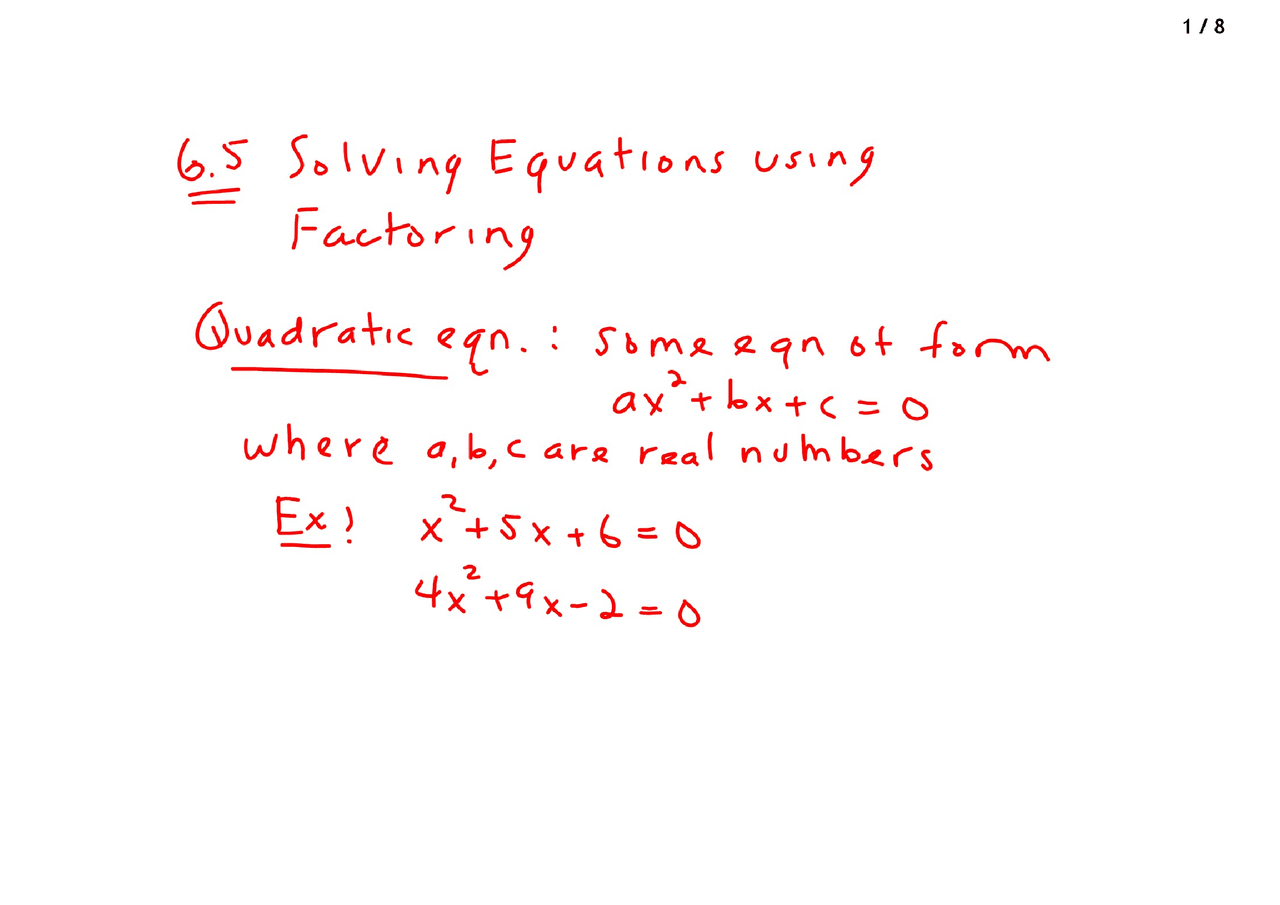 1 / 8
6.5 Solving Equations using
Factoring
Quadratic eqn. : some eqn of form
ax² + bx + c = 0
where a, b, c are real numbers
Ex: x² + 5x + 6 = 0
4x² + 9x - 2 = 0